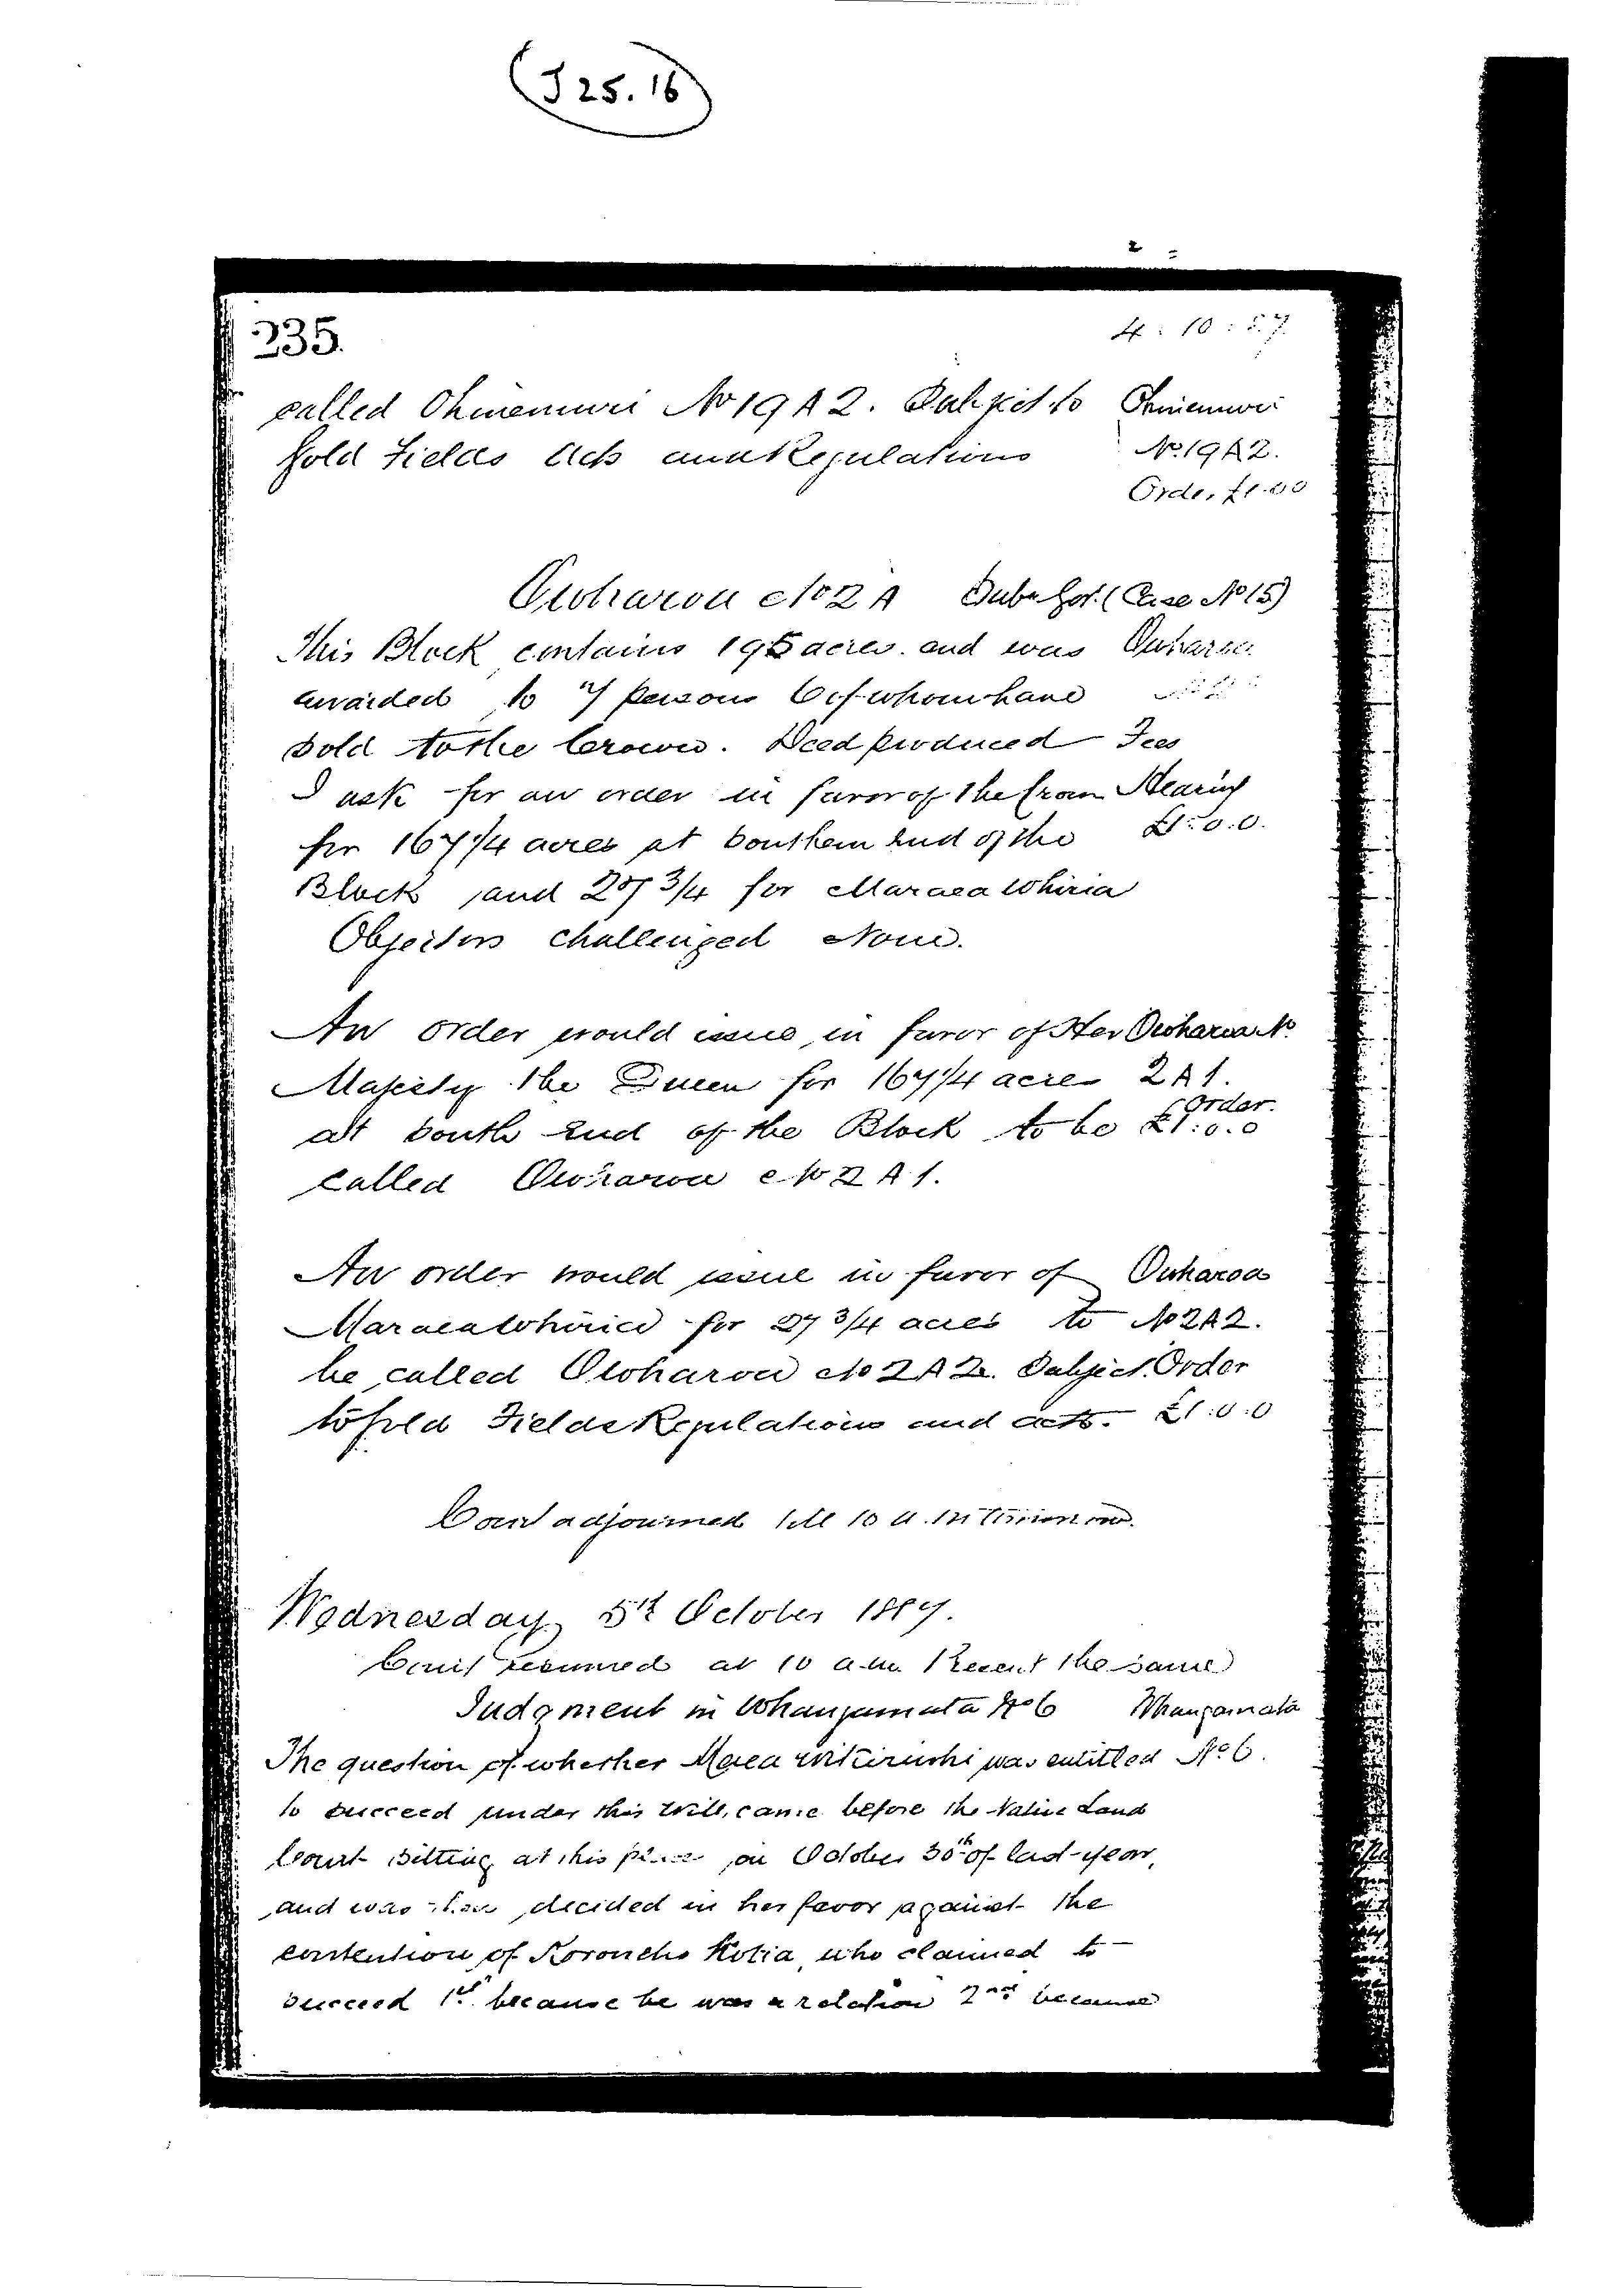 J 25.16
235.
4 : 10 : 87.
called Ohinemuri No 19 A 2. Subject to
Gold Fields Acts and Regulations
Ohinemuri
No. 19 A 2.
Order £1.0.0
Owharoa No 2 A Subn for. (Case No 15)
This Block contains 195 acres and was
awarded to 7 persons 6 of whom have
sold to the Crown. Deed produced
I ask for an order in favor of the Crown
for 167 1/4 acres at Southern End of the
Block and 27 3/4 for Maraea Whiria
Objectors challenged None.
Owharoa
Fees
Hearing
£1.0.0.
An order would issue in favor of Her
Majesty the Queen for 167 1/4 acres
at South End of the Block to be
called Owharoa No 2 A 1.
Owharoa No
2 A 1.
Order.
£1.0.0
An order would issue in favor of
Maraea Whiria for 27 3/4 acres to
be called Owharoa No 2 A 2. Subject
to Gold Fields Regulations and acts.
Owharoa
No 2 A 2.
Order
£1.0.0
Court adjourned till 10 a.m tomorrow.
Wednesday, 5th October 1887.
Court resumed at 10 a.m. Present the same
Judgment in Whangamata No 6
Whangamata
No 6.
The question of whether Merea Wikiriwhi was entitled
to succeed under this Will, came before the Native Land
Court sitting at this place on October 30th of last year,
and was then decided in her favor against the
contention of Korouche Kotia, who claimed to
succeed 1st. because he was a relation 2nd because